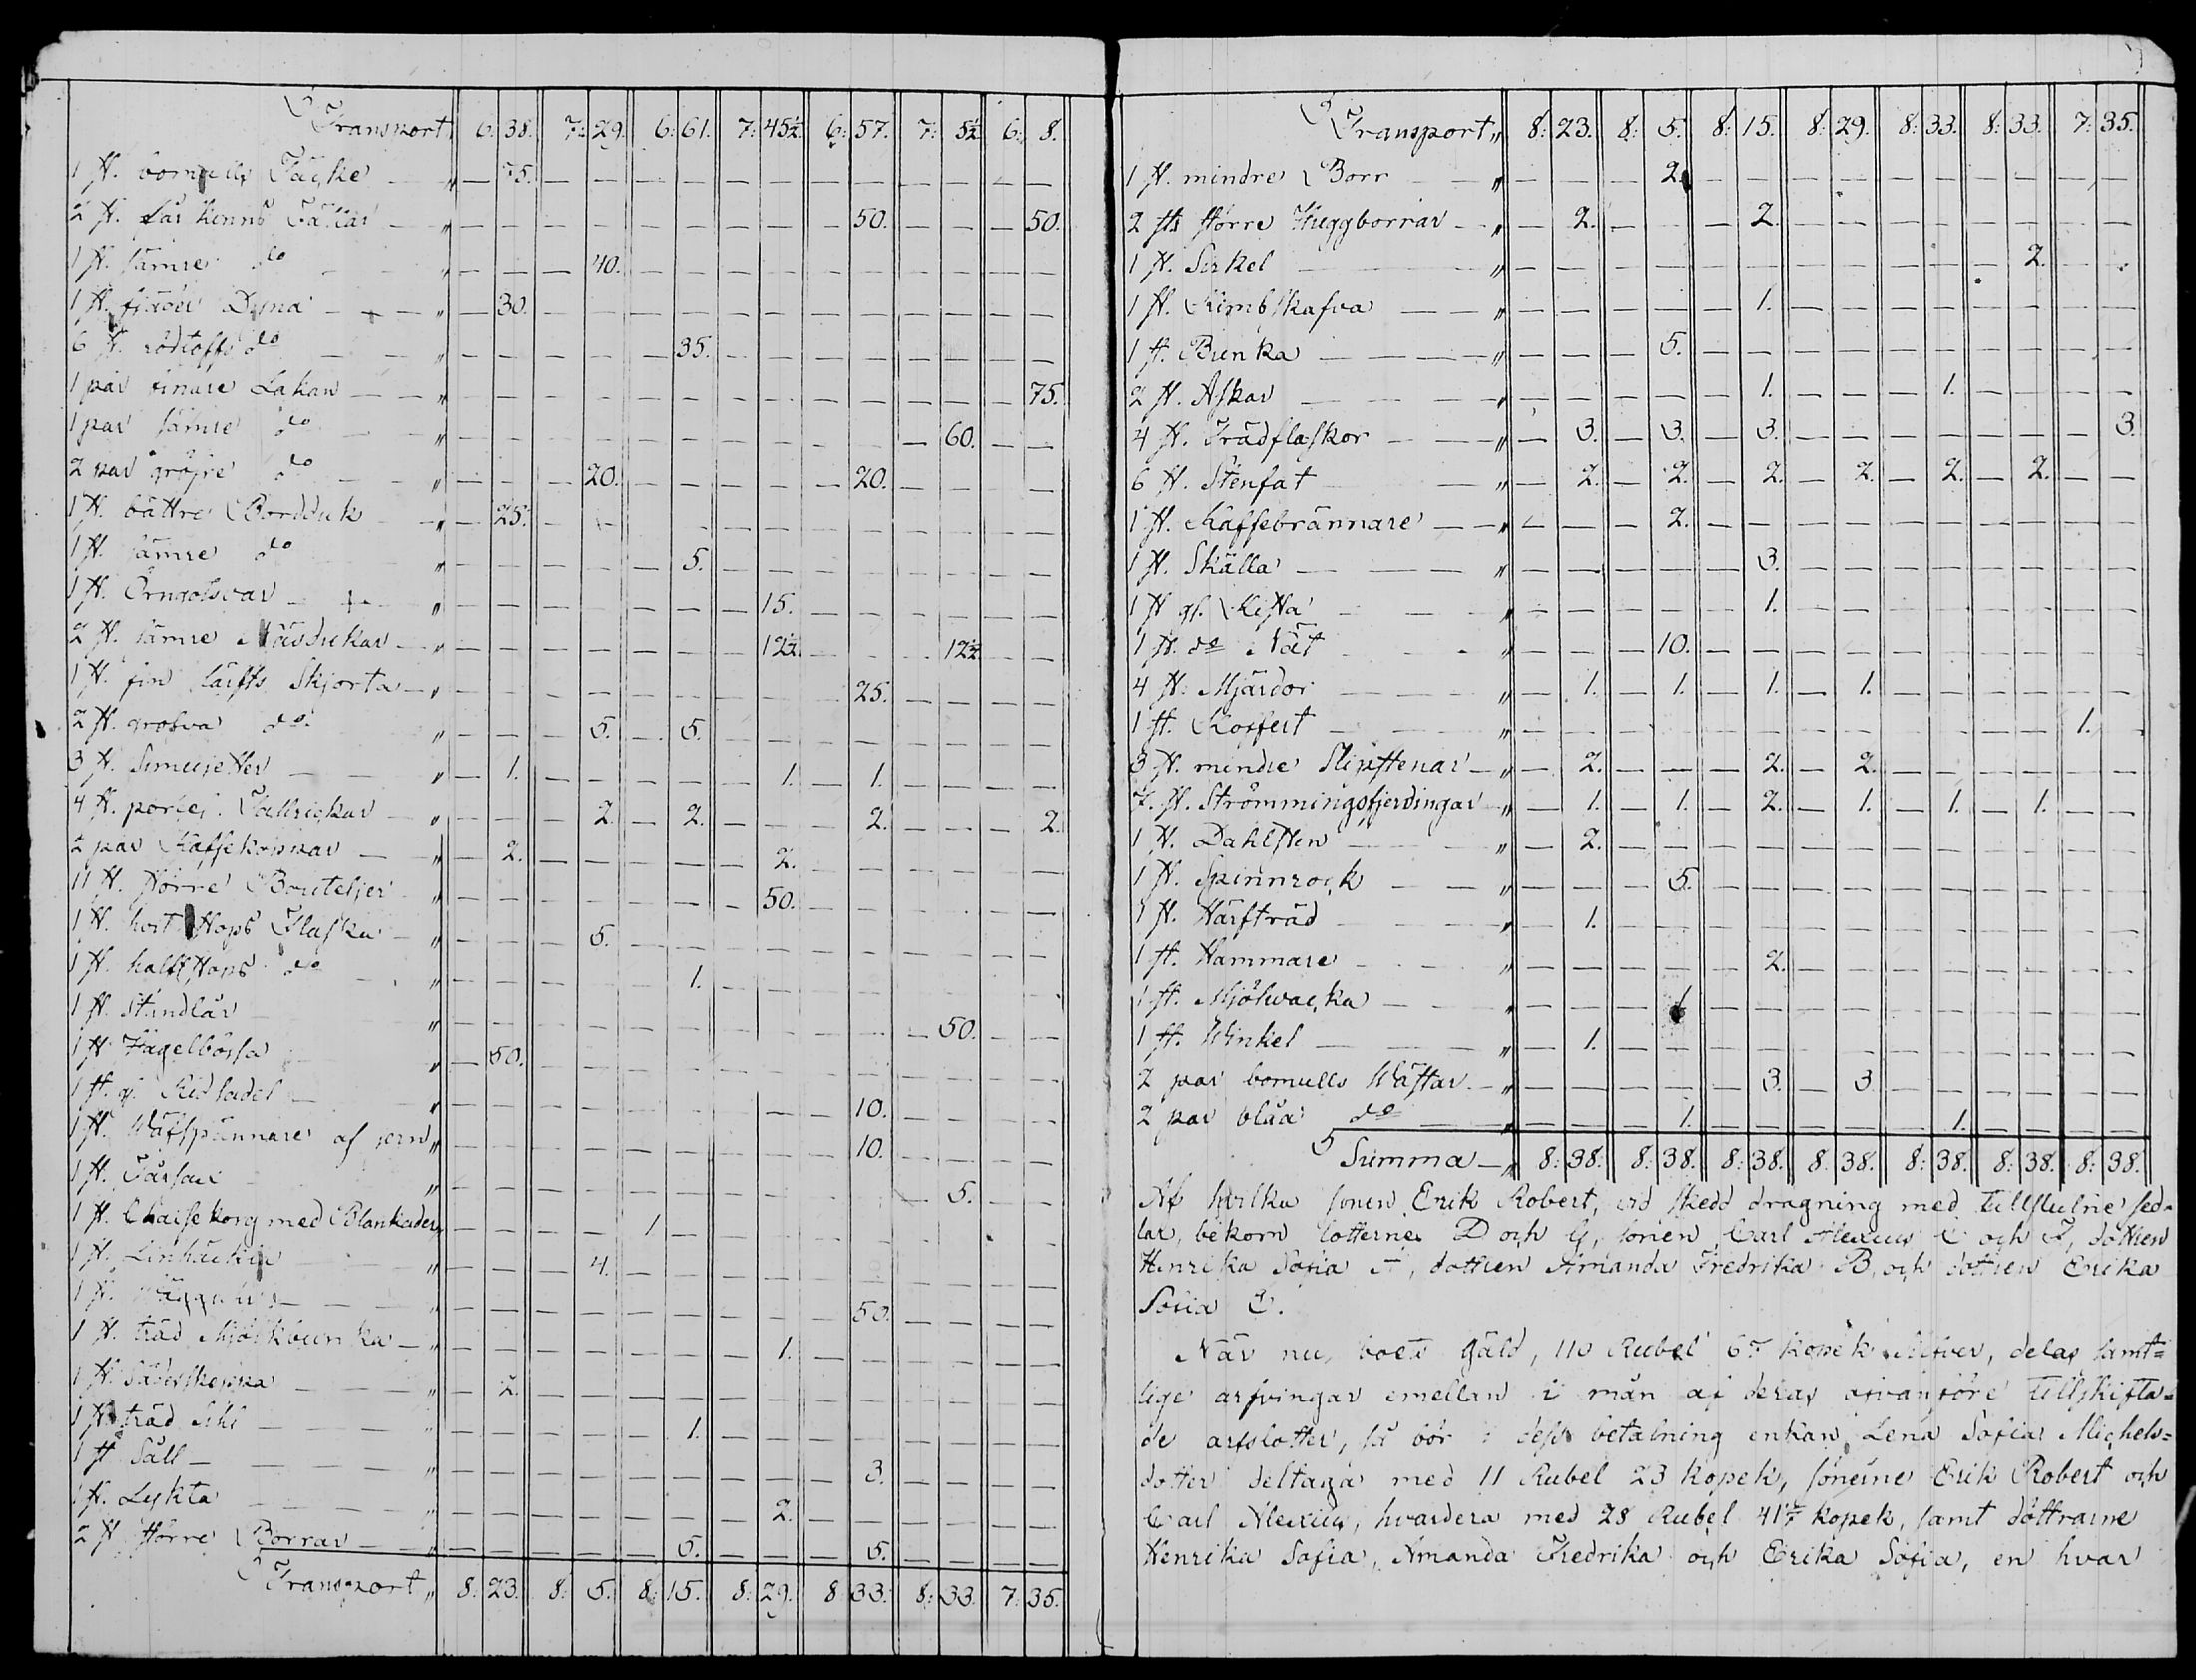 Transport " 6: 38. 7: 29. 6: 61. 7: 45½ 6: 57. 7: 5½ 6: 8.
1 st. bomulls Täcke " 75.
2 st. får skinns Fällar " 50. 50.
1 st. sämre do " 40.
1 st. fjäder Dyna " 30.
6 st. do " 35.
1 par finare Lakan " 75.
1 par sämre do " 60.
2 par gröfre do " 20. 20.
1 st. bättre Bordduk " 25.
1 st. sämre do " 5.
1 st. Örngotsvar " 15.
2 st. sämre Näsdukar " 12½ 12½
1 st. fin lärfts Skjorta " 25.
2 st. grofva do " 5. 5.
3 st. Semusetter " 1. 1. 1.
4 st. porlcj. Tallrickar " 2. 2. 2. 2.
2 par Kaffekoppar " 2. 2.
11 st. större Bouteljer " 50.
1 st. hvit Stops Flaska " 5.
1 st. halft Stops do " 1.
1 st. Stundlår " 50.
1 st. Hagelbössa " 50.
1 st. gl. Ridsadel " 10.
1 st. Wäfspännare af jern " 10.
1 st. Fårsax " 5.
1 st. Chaisekorg med Blankader " 1
1 st. Linhäckla " 4.
1 st. Wäggur " 50.
1 st. träd Mjölkbunka " 1.
1 st. Sädesskeppa " 2.
1 st. träd " 1.
1 st. Såll " 3.
1 st. Lykta " 2.
2 st. större Borrar " 5. 5.
Transport " 8: 23. 8: 5. 8: 15. 8: 29. 8: 33. 8: 33. 7: 35.
Transport " 8: 23. 8: 5. 8: 15. 8: 29. 8: 33. 8: 33. 7: 35.
1 st. mindre Borr " 2.
2 st. större Huggborrar " 2. 2.
1 st. Sirkel " 2.
1 st. Kimbskafva " 1.
1 st. Bunka " 5.
2 st. Askar " 1. 1.
4 st. Trädflaskor " 3. 3. 3. 3.
6 st. Stenfat " 2. 2. 2. 2. 2. 2.
1 st. Kaffebrännare " 2.
1 st. Skälla " 3.
1 st gl. Kista " 1.
1 st. do Nät " 10.
4 st. Mjärdor " 1. 1. 1. 1.
1 st. Koffert " 1.
3 st. mindre Slipstenar " 2. 2. 2.
7. st. Strömmingsfjerdingar " 1. 1. 2. 1. 1. 1.
1 st. Dahlsten " 2.
1 st. Spinnrock " 5.
1 st. Härfträd " 1.
1 st. Hammare " 2.
1 st. Mjölvacka "
1 st. Winkel " 1.
2 par bomulls Wästar " 3. 3
2 par blåa do " 1. 1.
Summa " 8: 38. 8: 38. 8: 38. 8: 38. 8: 38. 8: 38. 8: 38.
Af hvilka sonen Erik Robert, vid skedd dragning med tillslutne sed-
lar, bekom lotterne D och G, sonen Carl Alexius C och F, dottren
Henrika Sofia A, dottren Amanda Fredrika B, och dottren Erika
Sofia E.
När nu, boets gäld, 110 Rubel 67 kopek silfver, delas samt=
lige arfvingar emellan i mån af deras ofvanföre tillskifta=
de arfslotter, så bör i dess betalning enkan Lena Sofia Michels=
dotter deltaga med 11 Rubel 23 kopek, sönerne Erik Robert och
Carl Alexius, hvardera med 28 Rubel 41 kopek, samt döttrarne
Henrika Sofia, Amanda Fredrika och Erika Sofia, en hvar